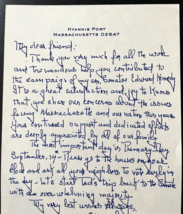 HYANNIS PORT
MASSACHUSETTS 02647
My dear friend:
Thank you very much for all the work
and the tremendous help you contributed to
the campaign of my son Senator Edward Kennedy
It's a great satisfaction and joy to know
that you share our concerns about the issues
facing Massachusetts and our nation. Your
continued and dedicated efforts
are deeply appreciated by all of our family.
The most important day is Primary Day
September 19. Please go to the houses
and ask all your neighbors to
the
with an overwhelming majority
My very best wishes always,